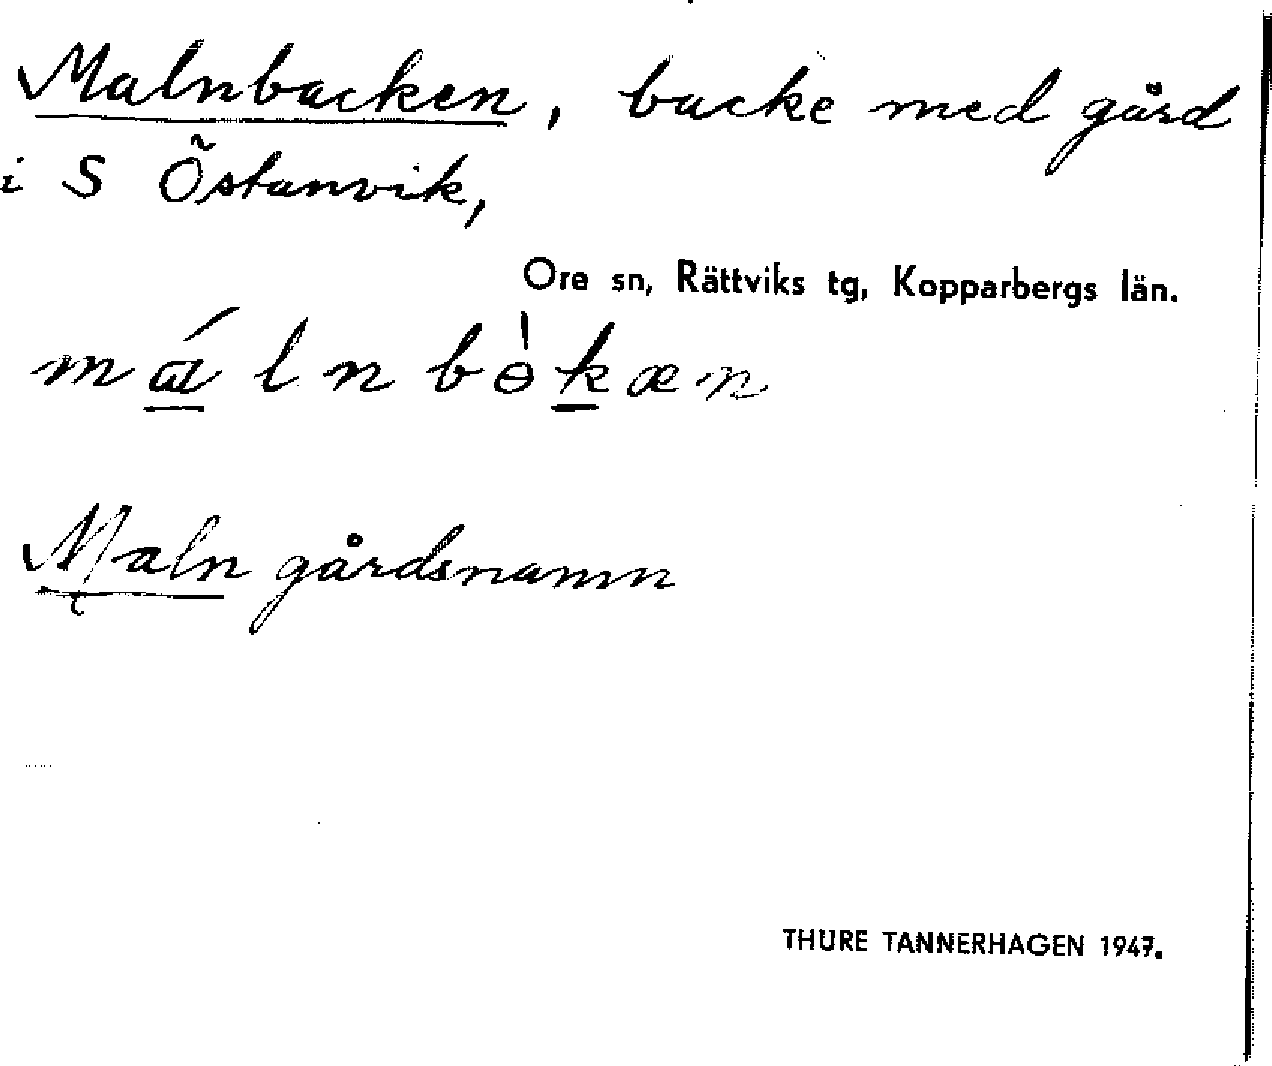 Malnbacken, backe med gård
i S Östanvik,
Ore sn, Rättviks tg, Kopparbergs län.
Maln gårdsnamn
THURE TANNERHAGEN 1947.